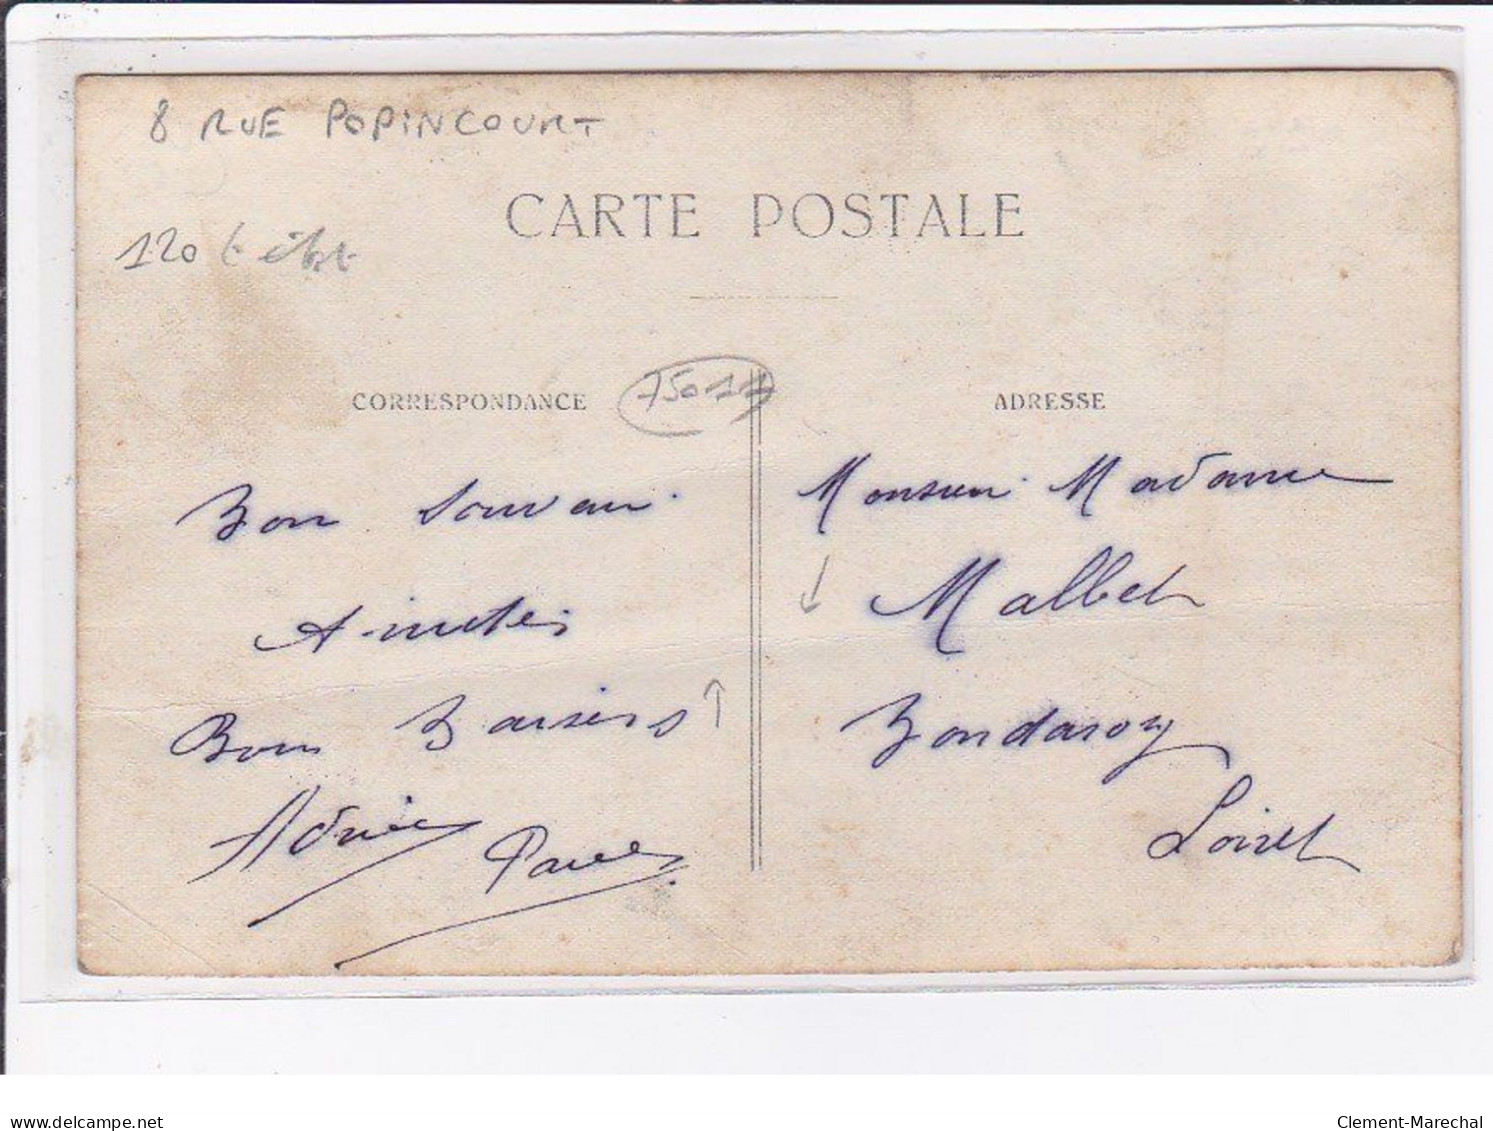 8 RUE POPINCOURT
CARTE POSTALE
120 t
CORRESPONDANCE
75011
ADRESSE
Bon Souvenir
Amitiés
Bons Baisers
Adrien
Monsieur Madame
Mallet
Bondaroy
Loiret
delcampe.net
Clement-Marechal